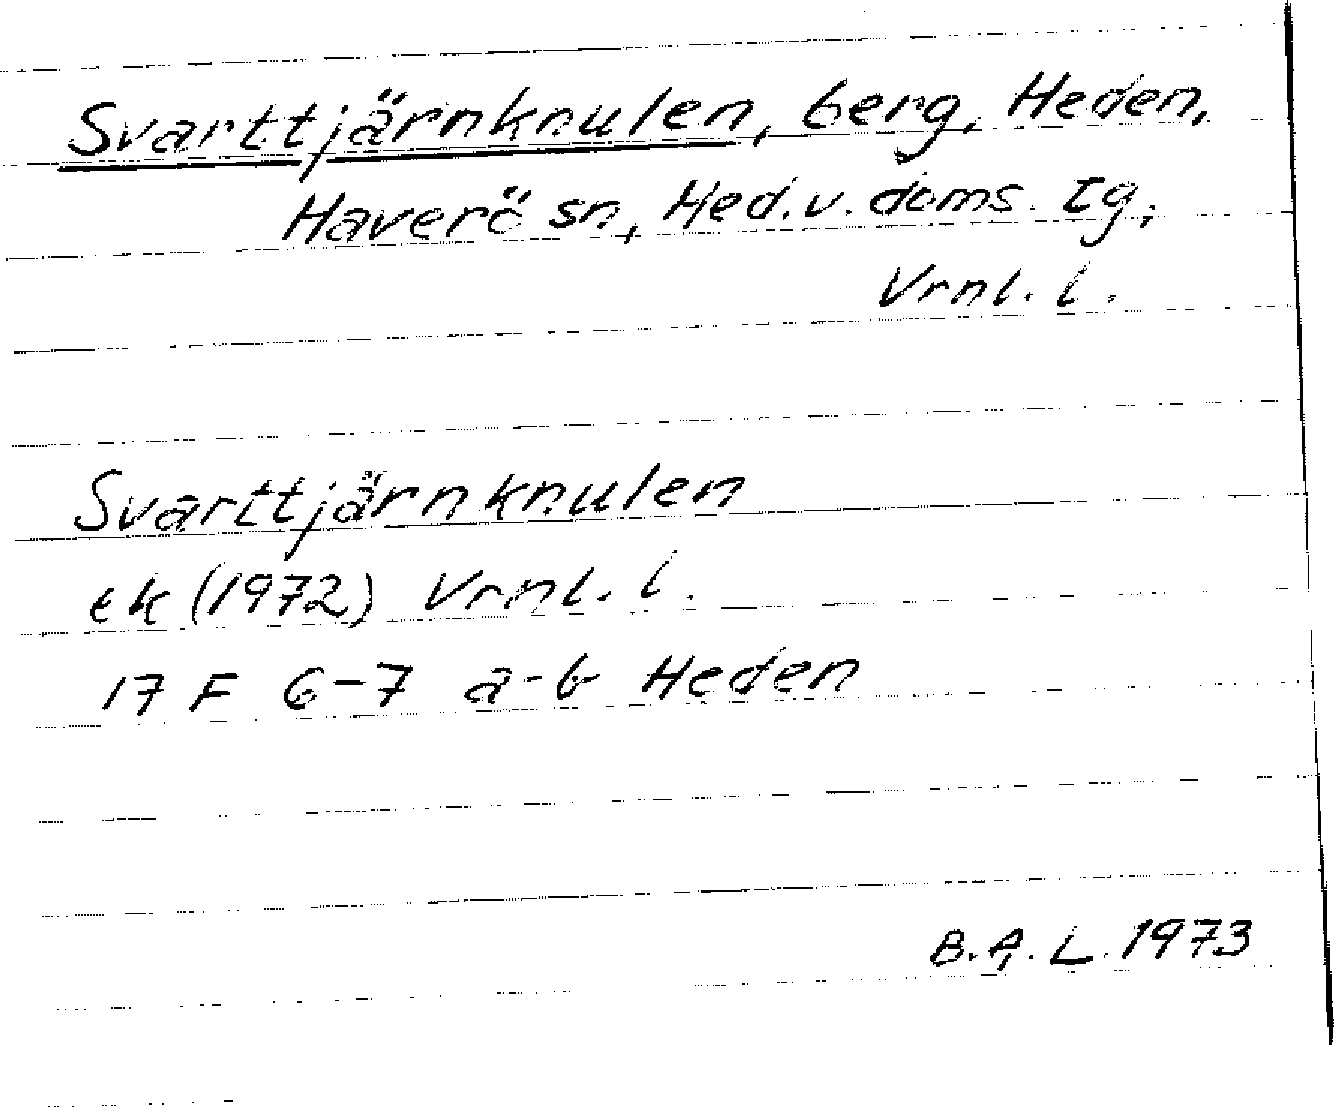 Svarttjärnknulen, berg, Heden,
Haverö sn, Med. v. doms. tg,
Vrnl. l.
Svarttjärnknulen
ek (1972) Vrnl. l.
17 F 6-7 a-b Heden
B.A.L. 1973